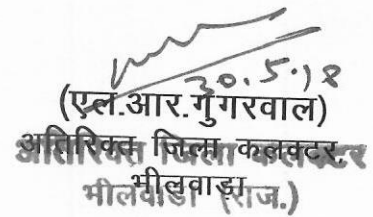 30.5.18
(एल.आर.गुगरवाल)
अतिरिक्त जिला कलक्टर,
भीलवाड़ा
अतिरिक्त जिला कलक्टर
भीलवाड़ा (राज.)